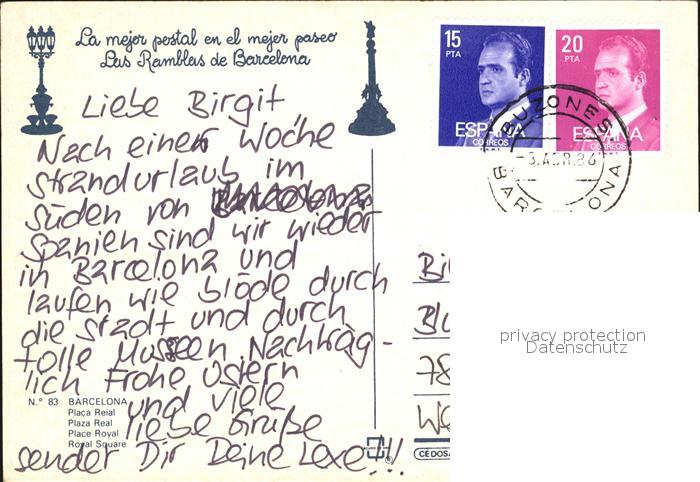 La mejor postal en el mejor paseo
Las Ramblas de Barcelona
15
PTA
ESPAÑA
CORREOS
20
PTA
ESPAÑA
CORREOS
BUZONES
-3.ABR.86
BARCELONA
Liebe Birgit,
Nach einer Woche
strandurlaub im
süden von
Spanien sind wir wieder
in Barcelona und
laufen wie blöde durch
die stadt und durch
tolle Museen Nachträg-
lich Frohe Ostern
und viele
liebe Grüße
sendet Dir Deine Lexe!!!
N.° 83 BARCELONA
Plaça Reial
Plaza Real
Place Royal
Royal Square
Bi
Blu
78
We
CEDOSA
privacy protection
Datenschutz